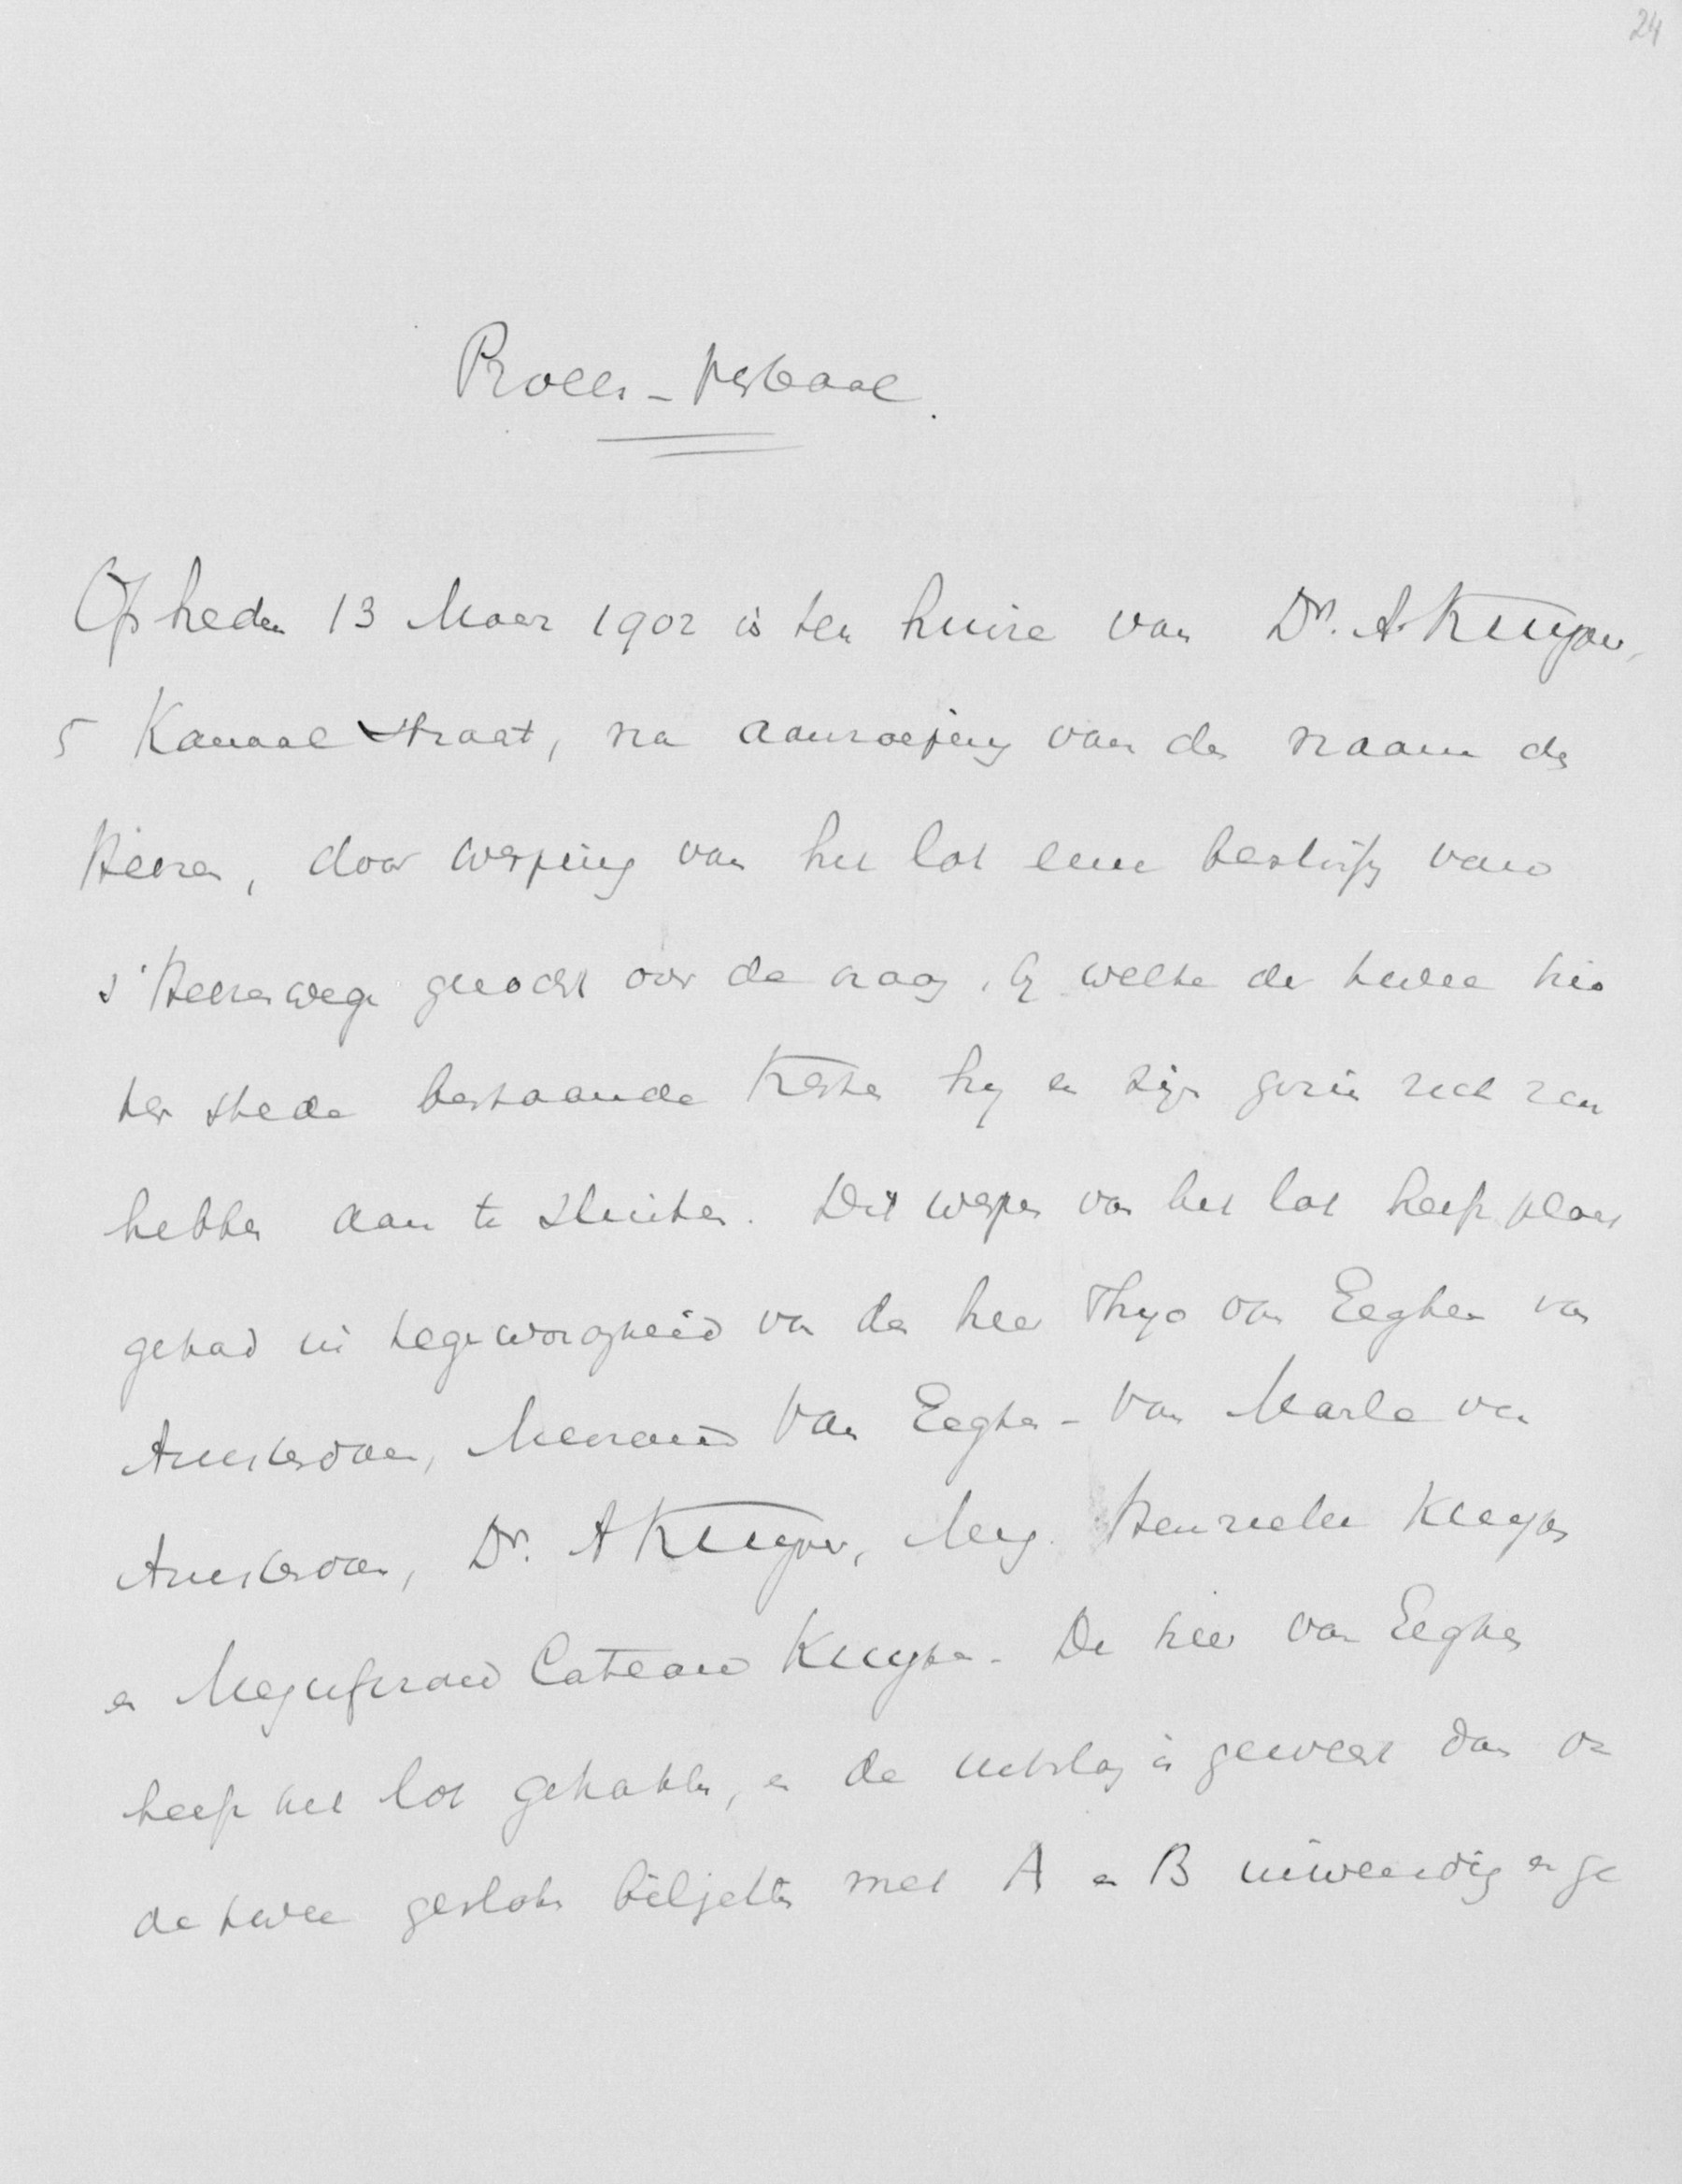 24
Proces-verbaal.
Op heden 13 Maar 1902 is ten huize van Dr. A. Kuyper,
5 Kanaalstraat, na aanroeping van den naam des
Heeren, door werping van het lot eene beslissing van
's Heerenwege gezocht over de vraag, bij welke der twee hier
ter stede bestaande Kerken hij en zijn gezin zich zou
hebben aan te sluiten. Dit werpen van het lot heeft plaats
gehad in tegenwoordigheid van den heer Thijo van Eeghen van
Amsterdam, Mevrouw Van Eeghen - Van Marle van
Amsterdam, Dr. A Kuyper, Mej. Henriette Kuyper
en Mejufvrouw Cateau Kuyper. De heer van Eeghen
heeft het lot getrokken, en de uitslag is geweest dat van
de twee gesloten biljetten met A en B inwendig en ge